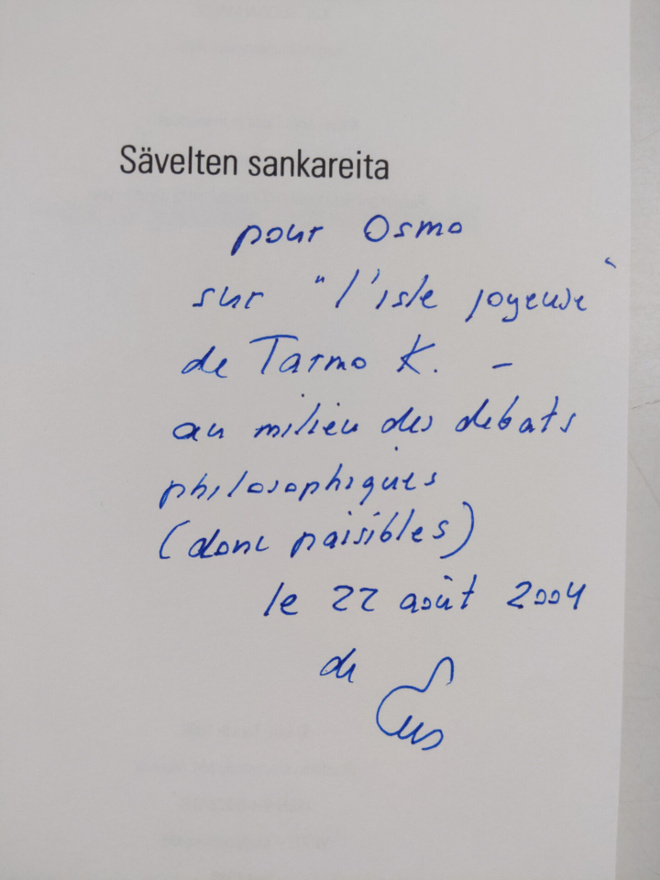 Sävelten sankareita
pour Osmo
sur "l'isle joyeuse"
de Tarmo K. –
au milieu des debats
philosophiques
(donc paisibles)
le 22 août 2004
de